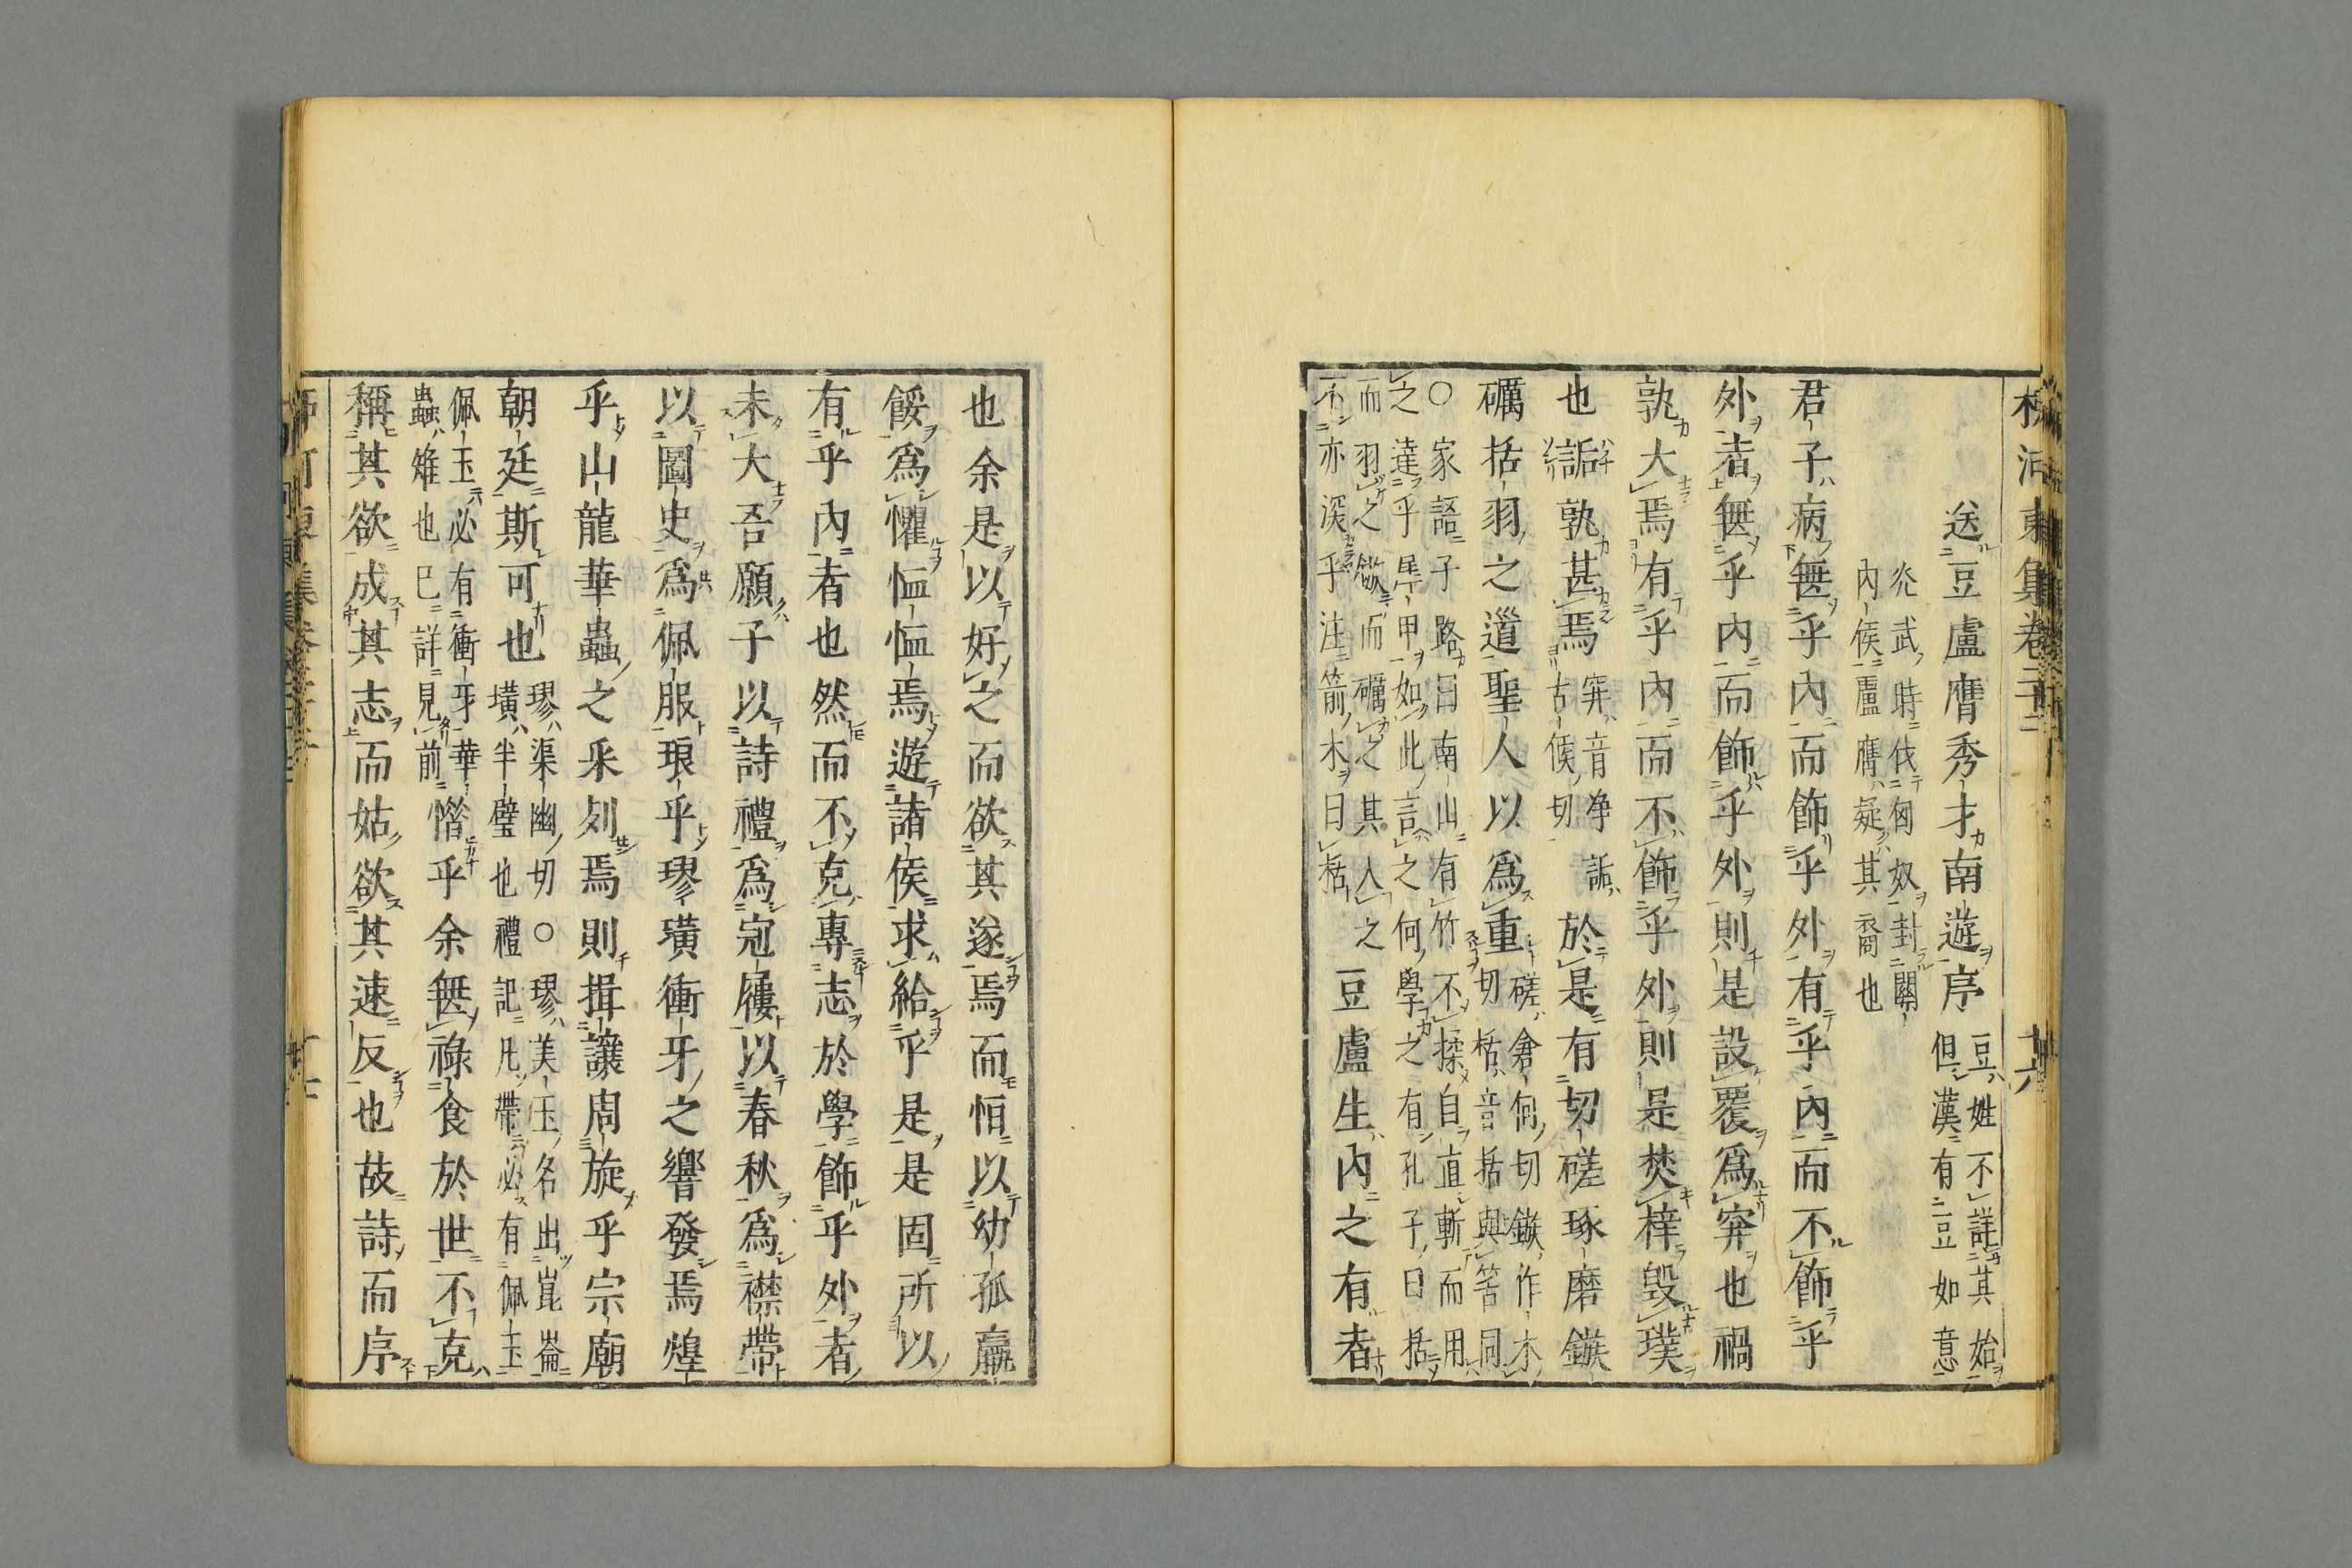 柳河東集卷二十二
十六
送豆盧膺秀才南遊序
豆姓不詳其始
但漢有二豆如意
光武時伐匈奴封關
內侯盧膺疑其裔也
君子病無乎內而飾乎外有乎內而不飾乎
外者無乎內而飾乎外則是設覆爲穽也禍
孰大焉有乎內而不飾乎外則是焚梓毀璞
也詬孰甚焉
穽音净詬
古候切
於是有切磋琢磨鏃
礪括羽之道聖人以爲重
磋倉何切鏃作木
切栝音括與筈同
○家語子路曰南山有竹不揉自直斬而用
之達乎犀甲如此言之何學之有孔子曰括
而羽之鏃而礪之其人之
不亦深乎注箭木曰栝
豆盧生內之有者
也余是以好之而欲其遂焉而恒以幼孤羸
餒爲懼恤恤焉遊諸侯求給乎是是固所以
有乎內者也然而不克專志於學飾乎外者
未大吾願子以詩禮爲冠屨以春秋爲襟帶
以圖史爲佩服琅乎璆璜衝牙之響發焉煌
乎山龍華蟲之采列焉則揖讓周旋乎宗廟
朝廷斯可也
璆渠幽切○璆美玉名出崑崙
璜半璧也禮記凡帶必有佩玉
佩玉必有衝牙華
蟲雉也已詳見前
惜乎余無祿食於世不克
稱其欲成其志而姑欲其速反也故詩而序